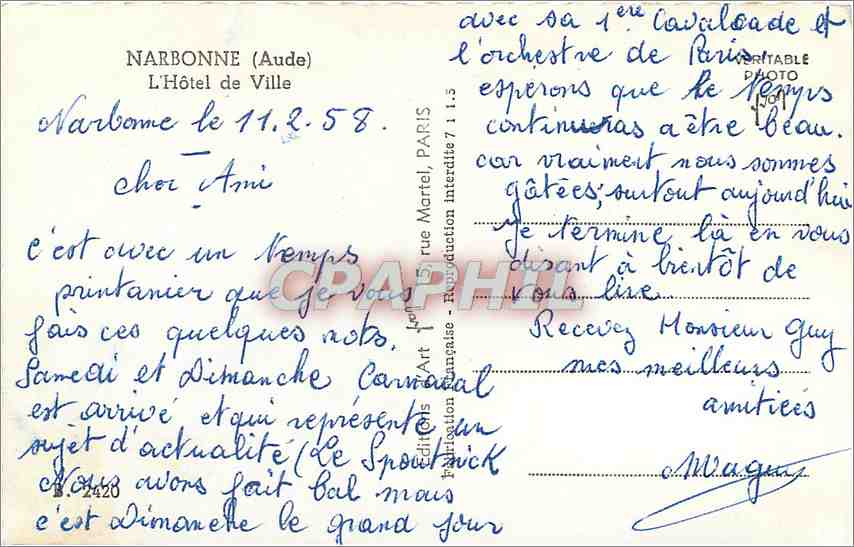 NARBONNE (Aude)
L'Hôtel de Ville
Narbonne le 11.2.58.
cher Ami
c'est avec un temps
printanier que je vous
fais ces quelques mots.
Samedi et Dimanche Carnaval
est arrivé et qui représente un
sujet d'actualité (Le Spoutnick
Nous avons fait bal mais
c'est Dimanche le grand jour
B. 2420
Editions d'Art Yvon 15, rue Martel, PARIS
Fabrication Française - Reproduction interdite 7 1 1.5
CPAPHIL
avec sa 1ère Cavalcade et
l'orchestre de Paris.
VÉRITABLE
PHOTO
yvon
espérons que le temps
continueras a être beau.
car vraiment nous sommes
gâtées, surtout aujourd'hui
Je termine là en vous
disant à bientôt de
vous lire
Recevez Monsieur Guy
mes meilleurs
amitiées